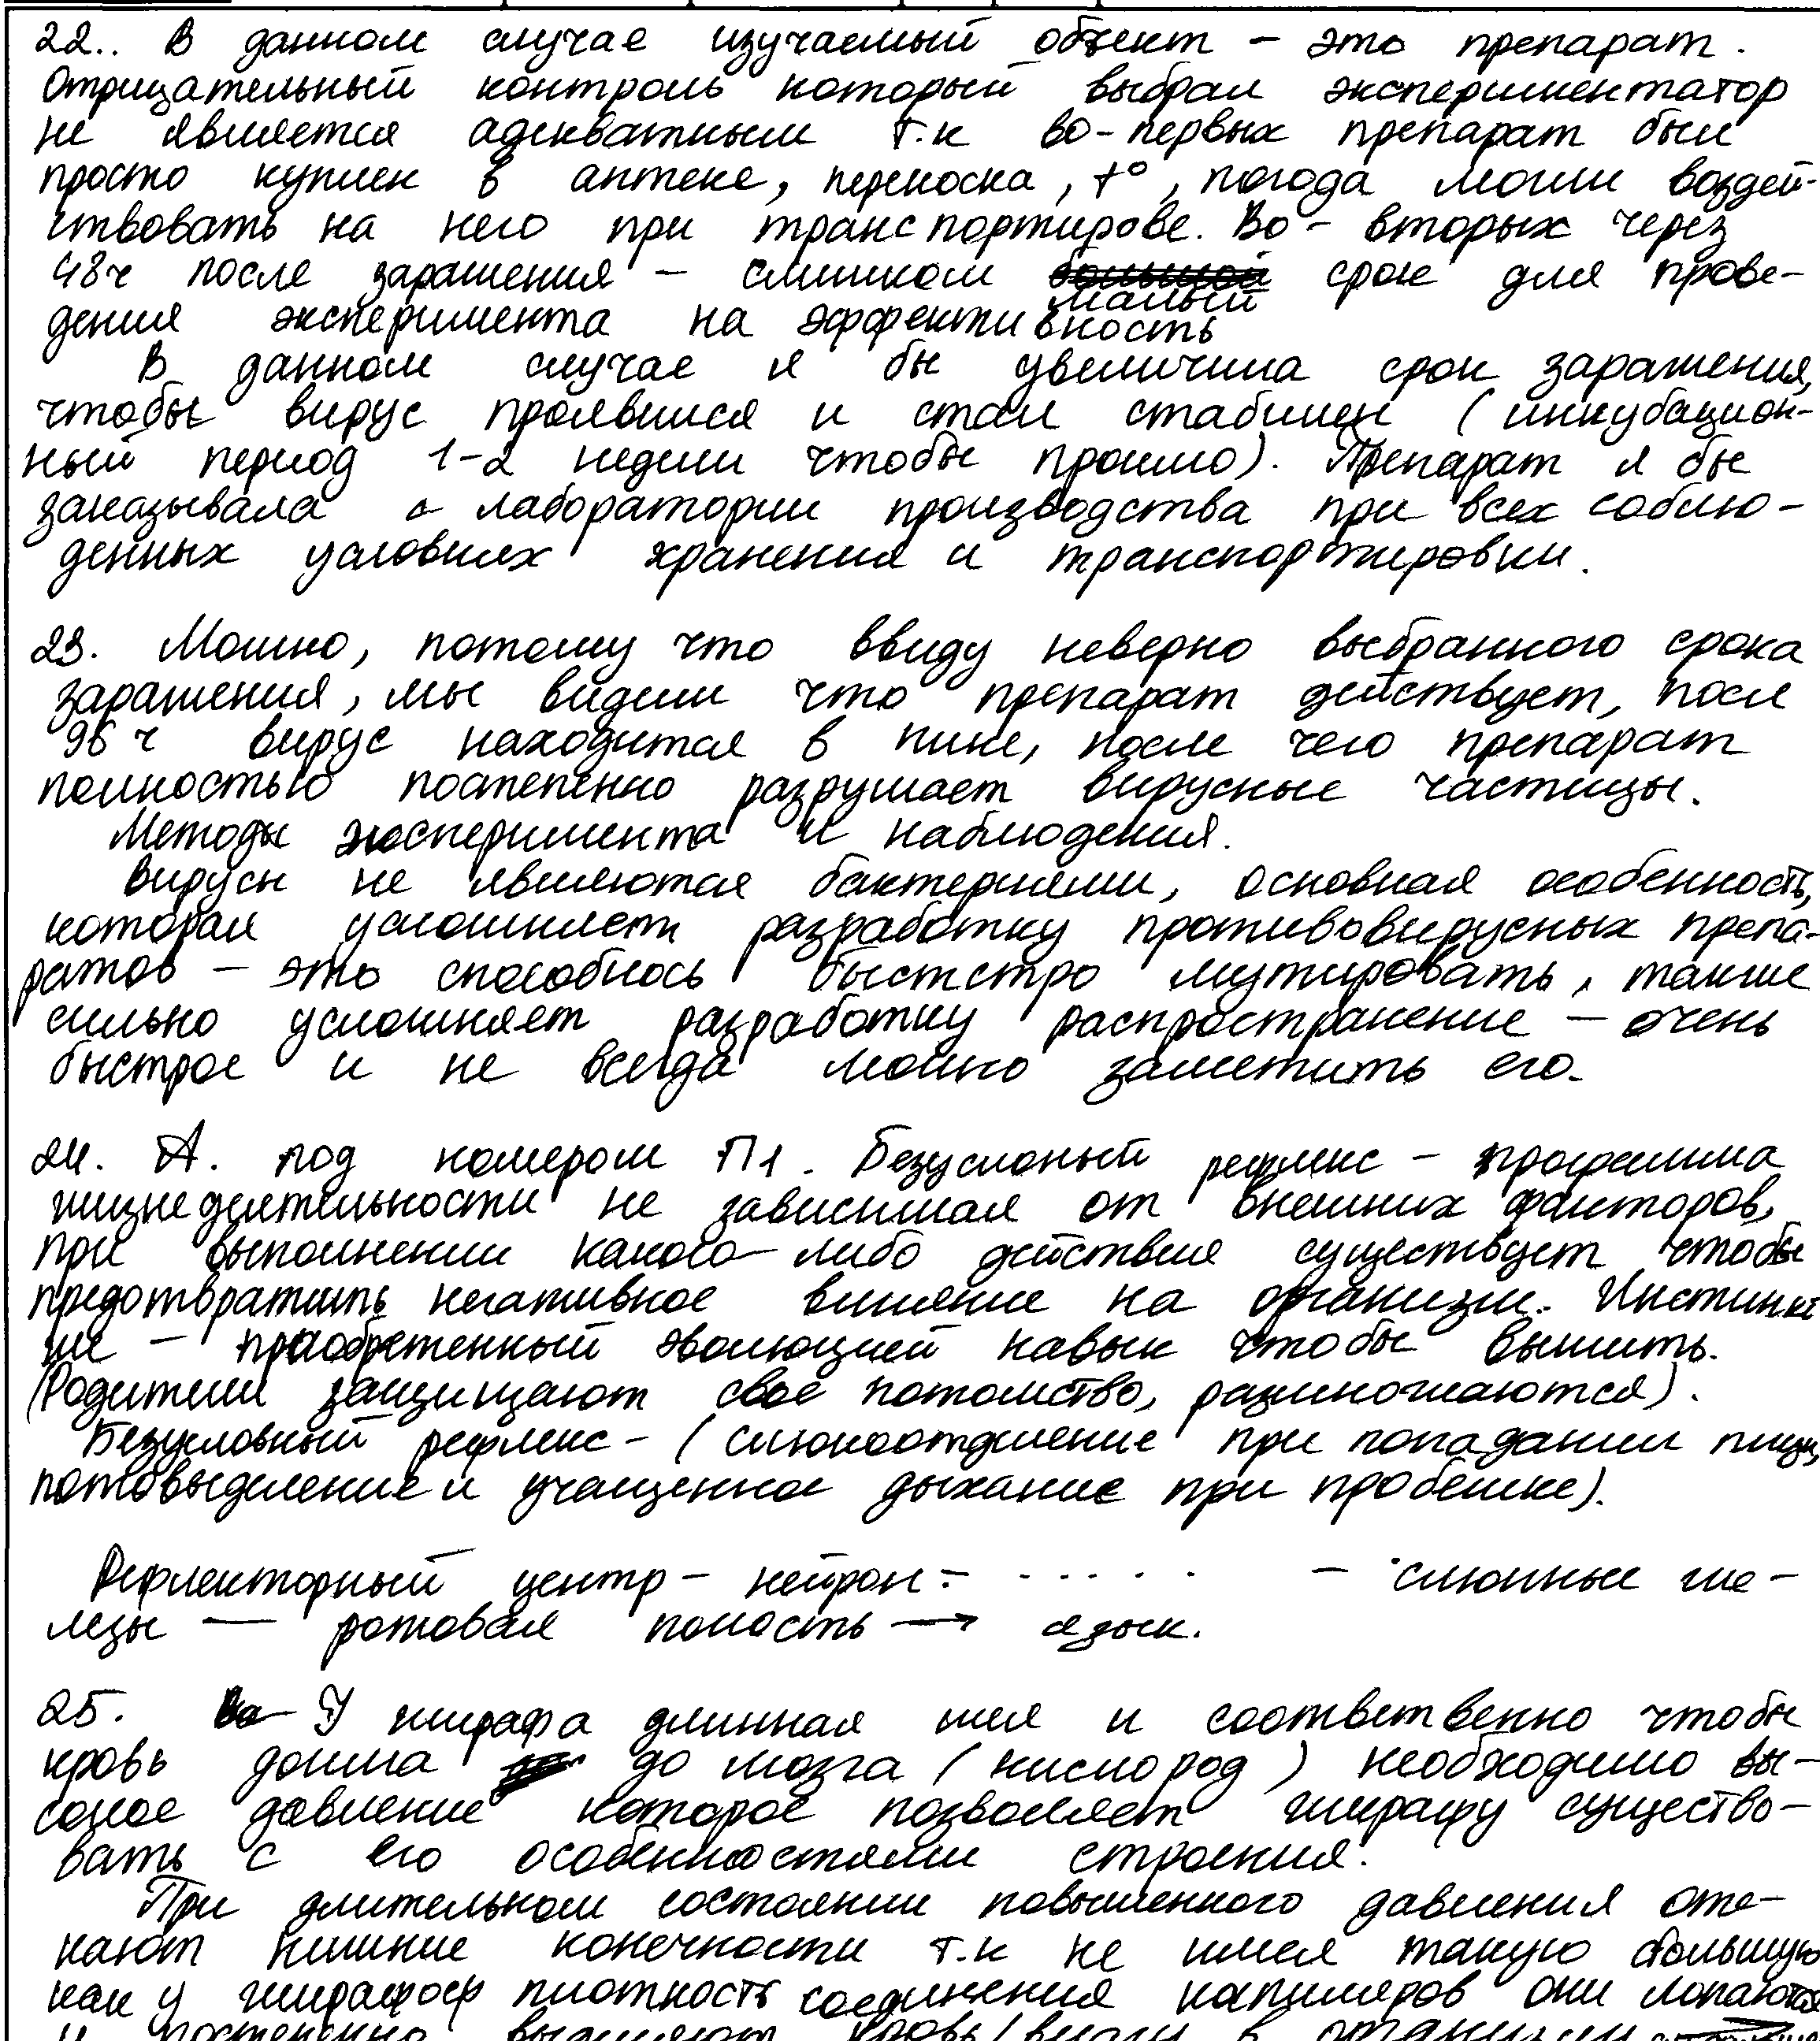 22.. В данном случае изучаемый объект - это препарат.
Отрицательный контроль который выбрал экспериментатор
не является адекватным т.к во-первых препарат был
просто куплен в аптеке, переноска, t°, погода могли воздей-
ствовать на него при транспортирове. Во-вторых через
48ч после заражения - слишком малый срок для прове-
дения эксперимента на эффективность
В данном случае я бы увеличила срок заражения,
чтобы вирус проявился и стал стабилен (инкубацион-
ный период 1-2 недели чтобы прошло). Препарат я бы
заказывала с лаборатории производства при всех соблю-
денных условиях хранения и транспортировки.
23. Можно, потому что ввиду неверно выбранного срока
заражения, мы видим что препарат действует, после
96 ч вирус находится в пике, после чего препарат
полностью постепенно разрушает вирусные частицы.
Методы экосперимента и наблюдения.
Вирусы не являются бактериями, основная особенность,
которая усложняет разработку противовирусных препа-
ратов - это способнось быстстро мутировать, также
сильно усложняет разработку распространение - очень
быстрое и не всегда можно заметить его.
24. А. под номером П1. Безусловый рефлекс - программа
жизнедеятельности не зависимая от внешних факторов,
при выполнении какого-либо действия существует чтобы
предотвратить негативное влияние на организм. Инстинкт
же - приобретенный эволюцией навык чтобы выжить.
(Родители защищают своё потомство, размножаются).
Безусловный рефлекс - (слюноотделение при попадании пищи,
потовыделение и учащенное дыхание при пробежке).
Рефлекторный центр - нейрон - ..... - слюнные же-
лезы — ротовая полость → язык.
25. У жирафа длинная шея и соответственно чтобы
кровь дошла до мозга (кислород) необходимо вы-
сокое давление которое позволяет жирафу существо-
вать с его особенностями строения.
При длительном состоянии повышенного давления оте-
кают нижние конечности т.к не имея такую большую
как у жирафоф плотность соединения капиляров они лопаются
и постепенно